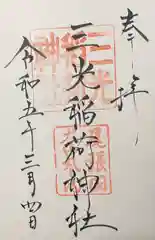 奉拝
三光稲荷神社
令和五年三月四日